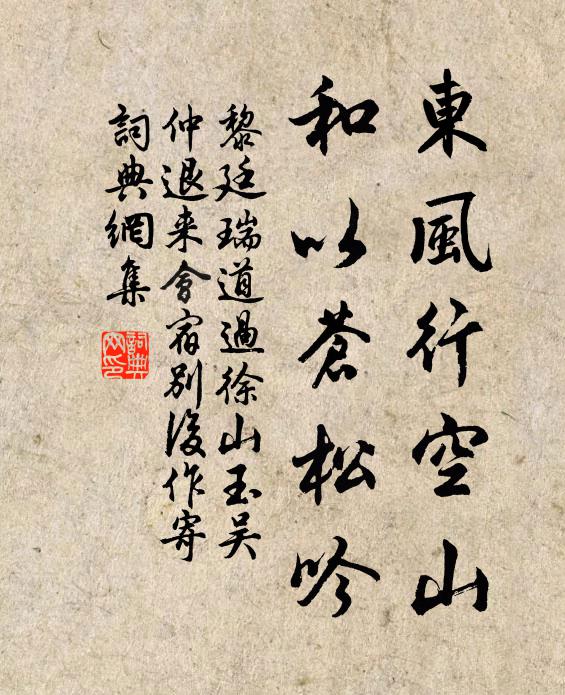 東風行空山
和以蒼松吟
黎廷瑞道過徐山玉吴
仲退来會宿別後作寄
詞典網集
詞典网印